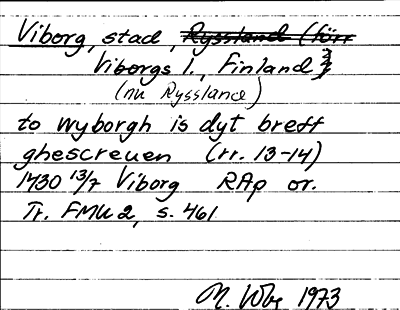 Viborg, stad, Ryssland (förr
Viborgs l., Finland}
(nu Ryssland)
to wyborgh is dyt breff
ghescreuen (rr. 13-14)
1430 13/7 Viborg RAp or.
Tr. FMU 2, s. 461
1973